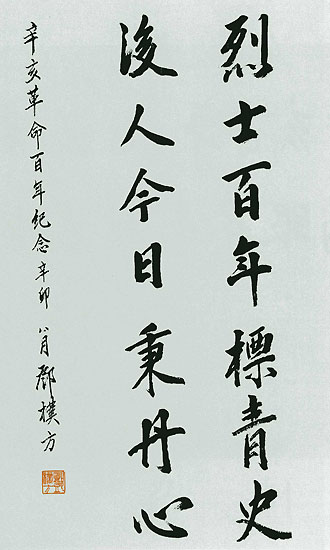 烈士百年標青史
後人今日秉丹心
辛亥革命百年紀念 辛卯八月 鄧樸方